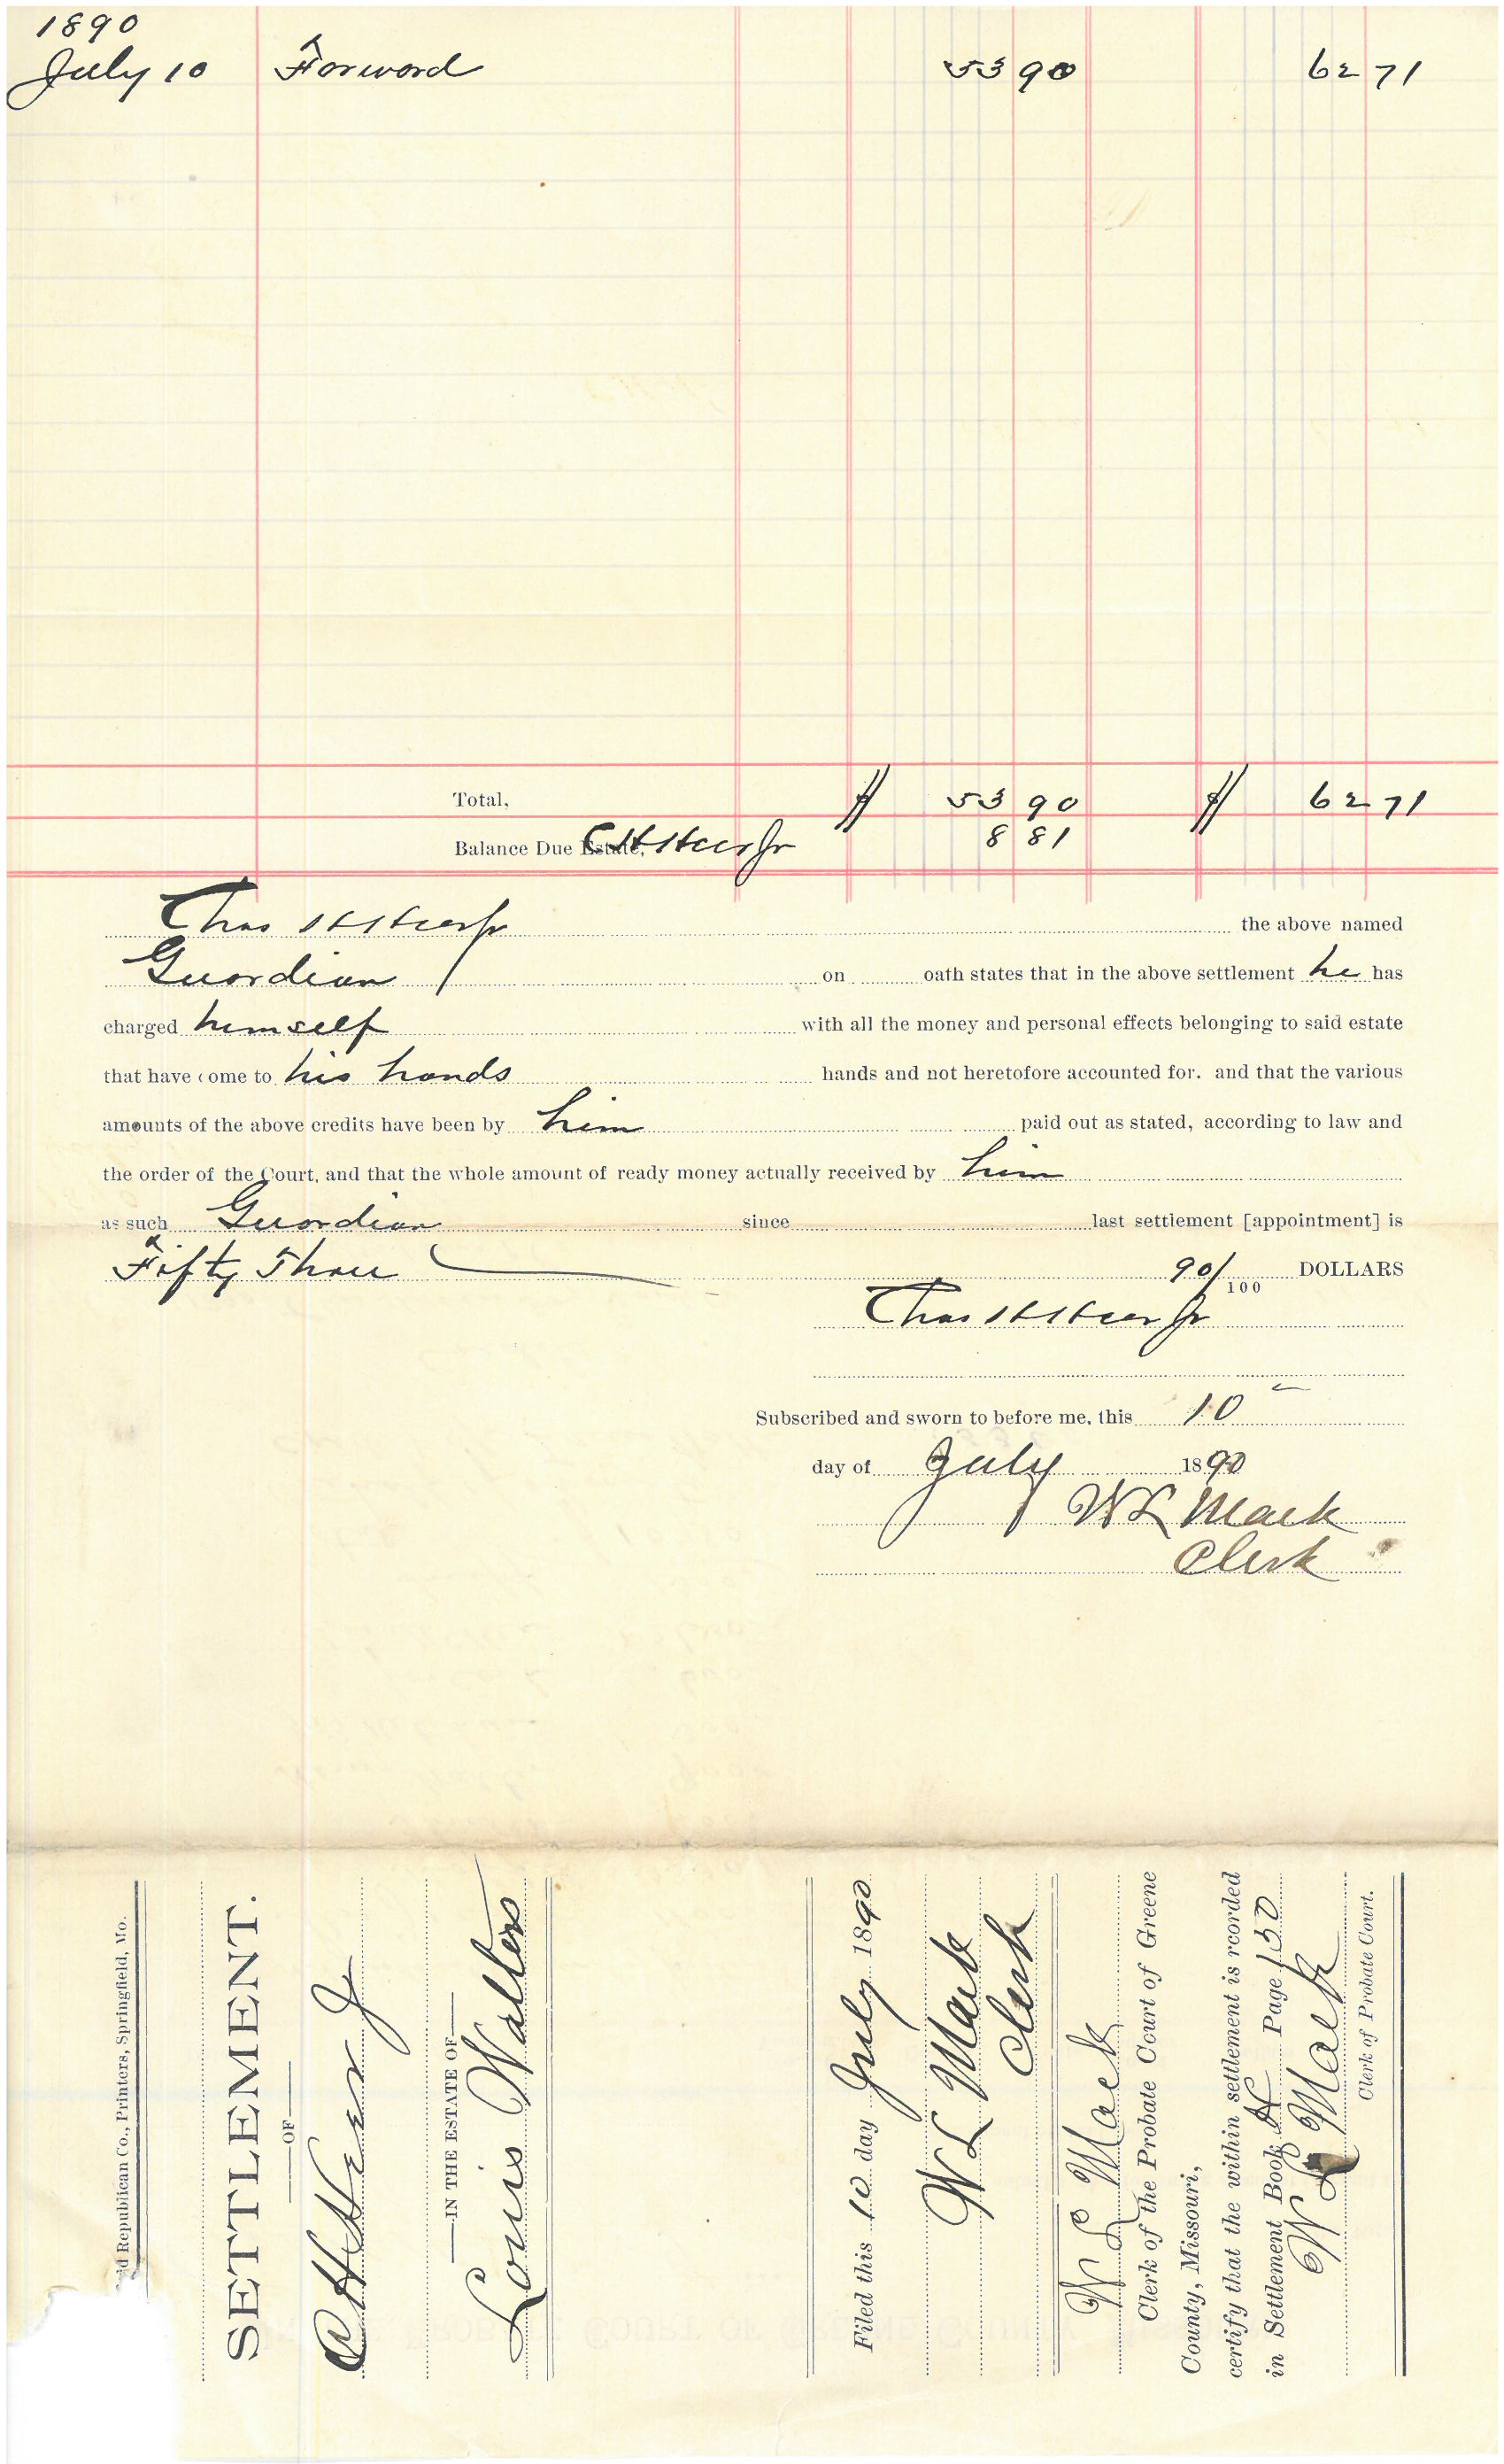 1890
July 10 Forword 53 90 62 71
Total, $ 53 90 $ 62 71
Balance Due Estate, C H Heer Jr 8 81
Chas H Heer Jr the above named
Guardian on oath states that in the above settlement he has
charged himself with all the money and personal effects belonging to said estate
that have come to his hands hands and not heretofore accounted for. and that the various
amounts of the above credits have been by him paid out as stated, according to law and
the order of the Court, and that the whole amount of ready money actually received by him
as such Guardian since last settlement [appointment] is
Fifty Three 90/100 DOLLARS
Chas H Heer Jr
Subscribed and sworn to before me, this 10
day of July 1890
W L Mack
Clerk
d Republican Co., Printers, Springfield, Mo.
SETTLEMENT.
OF
C H Heer Jr
IN THE ESTATE OF
Louis Walters
Filed this 10 day July 1890
W L Mack
Clerk
W L Mack
Clerk of the Probate Court of Greene
County, Missouri,
certify that the within settlement is recorded
in Settlement Book H Page 130
W L Mack
Clerk of Probate Court.